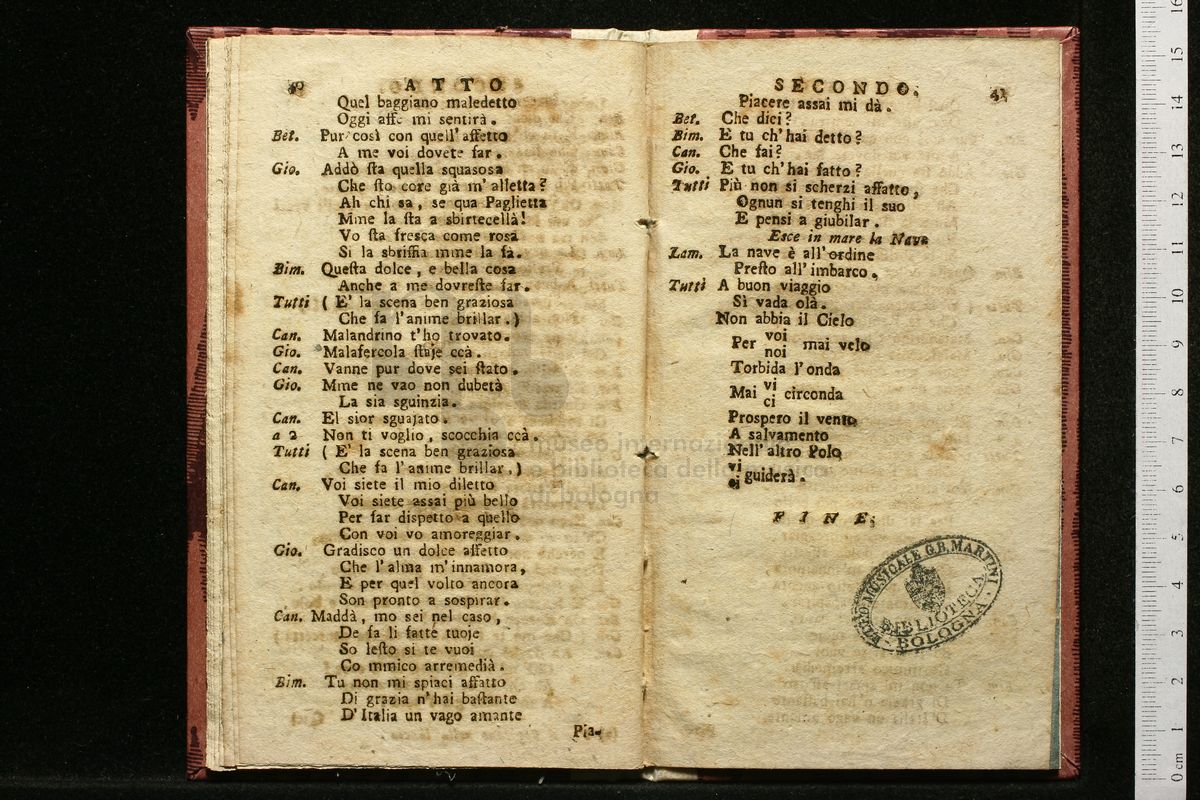 40 ATTO
Quel baggiano maledetto
Oggi affe mi sentirà.
Bet. Pur così con quell' affetto
A me voi dovete far.
Gio. Addò sta quella squasosa
Che sto core già m' alletta?
Ah chi sa, se qua Paglietta
Mme la sta a sbirtecellà!
Vo sta fresca come rosa
Si la sbriffia mme la fa.
Bim. Questa dolce, e bella cosa
Anche a me dovreste far.
Tutti ( E' la scena ben graziosa
Che fa l'anime brillar.)
Can. Malandrino t'ho trovato.
Gio. Malafercola staje ccà.
Can. Vanne pur dove sei stato.
Gio. Mme ne vao non dubetà
La sia sguinzia.
Can. El sior sguajato.
a 2 Non ti voglio, scocchia ccà.
Tutti ( E' la scena ben graziosa
Che fa l'anime brillar.)
Can. Voi siete il mio diletto
Voi siete assai più bello
Per far dispetto a quello
Con voi vo amoreggiar.
Gio. Gradisco un dolce affetto
Che l'alma m'innamora,
E per quel volto ancora
Son pronto a sospirar.
Can. Maddà, mo sei nel caso,
De fa li fatte tuoje
So lesto si te vuoi
Co mmico arremedià.
Bim. Tu non mi spiaci affatto
Di grazia n'hai bastante
D'Italia un vago amante
Pia-
SECONDO. 41
Piacere assai mi dà.
Bet. Che dici?
Bim. E tu ch'hai detto?
Can. Che fai?
Gio. E tu ch'hai fatto?
Tutti Più non si scherzi affatto,
Ognun si tenghi il suo
E pensi a giubilar.
Esce in mare la Nave
Zam. La nave è all'ordine
Presto all'imbarco.
Tutti A buon viaggio
Sì vada olà.
Non abbia il Cielo
Per voi mai velo
noi
Torbida l'onda
Mai vi circonda
ci
Prospero il vento
A salvamento
Nell'altro Polo
vi guiderà.
ci
FINE.
MUSICALE G.B. MARTINI
BIBLIOTECA
BOLOGNA
museo internazionale
e biblioteca della musica
di bologna
0 cm 1 2 3 4 5 6 7 8 9 10 11 12 13 14 15 16